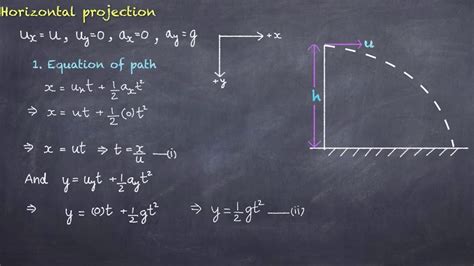 Horizontal projection
uₓ = u, u_y = 0, aₓ = 0, a_y = g
+x
+y
u
h
1. Equation of path
x = uₓt + ½aₓt²
⇒ x = ut + ½(0)t²
⇒ x = ut ⇒ t = x/u —(i)
And y = u_yt + ½a_yt²
⇒ y = (0)t + ½gt² ⇒ y = ½gt² —(ii)